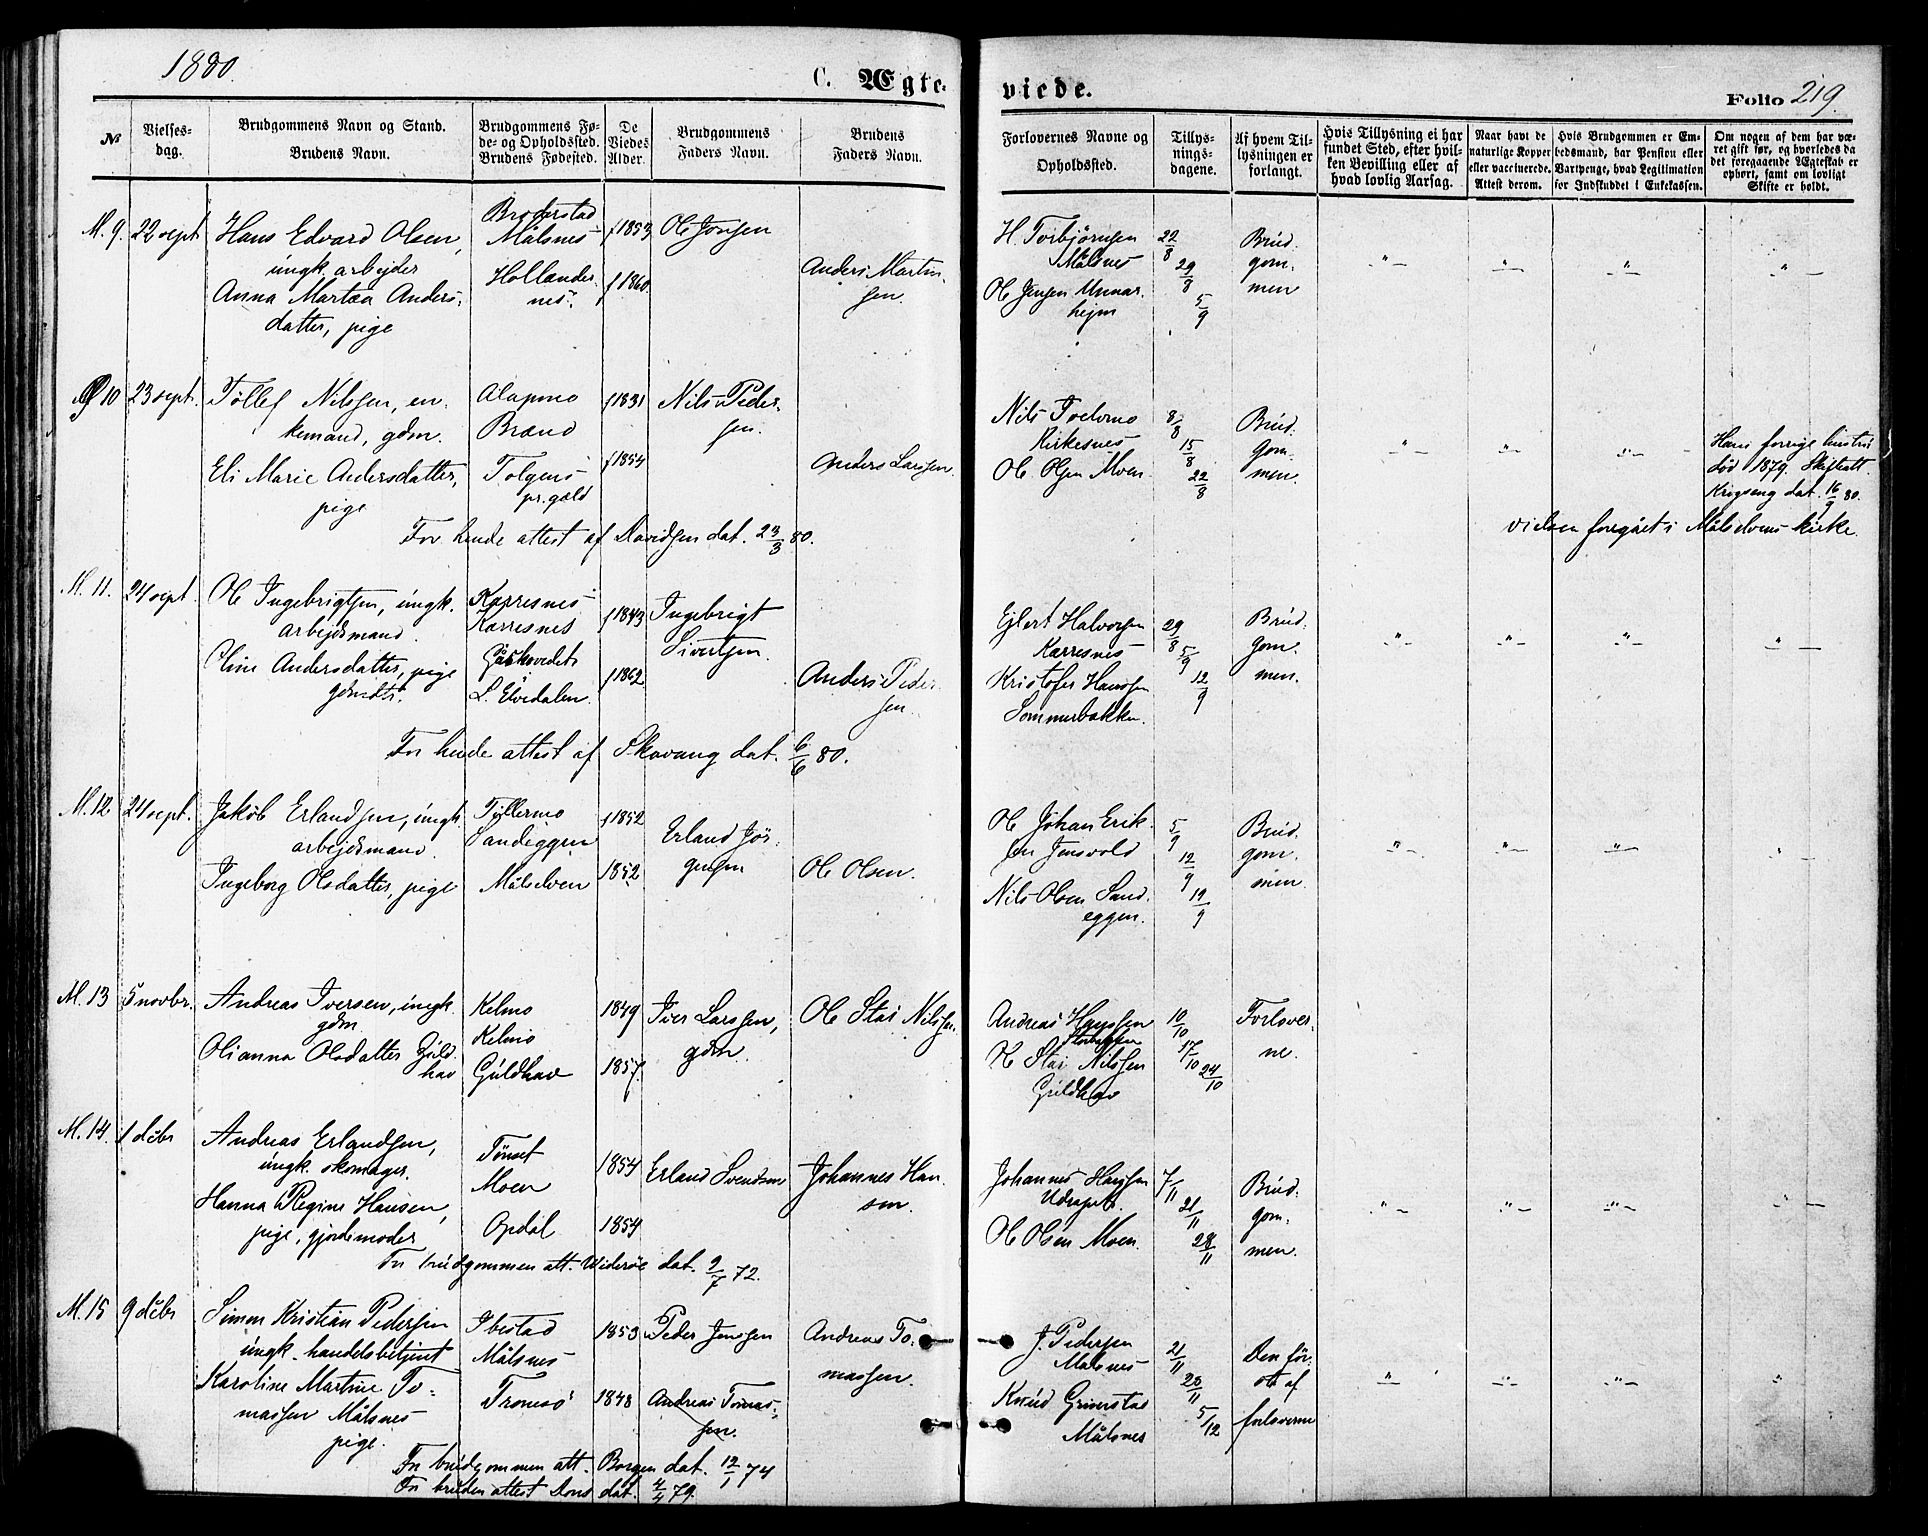 1880.
C. Ægte-
viede.
Folio 219.
№
Vielses-
dag.
Brudgommens Navn og Stand.
Brudens Navn.
Brudgommens Fø-
de- og Opholdssted.
Brudens Fødested.
De
Viedes
Alder.
Brudgommens
Faders Navn.
Brudens
Faders Navn.
Forlovernes Navne og
Opholdssted.
Tillys-
nings-
dagene.
Af hvem Til-
lysningen er
forlangt.
Hvis Tillysning ei har
fundet Sted, efter hvil-
ken Bevilling eller af
hvad lovlig Aarsag.
Naar havt de
naturlige Kopper
eller vaccinerede.
Attest derom.
Hvis Brudgommen er Em-
bedsmand, har Pension eller
Vartpenge, hvad Legitimation
for Indskuddet i Enkekassen.
Om nogen af dem har væ-
ret gift før, og hvorledes da
det foregaaende Ægteskab er
ophørt, samt om lovligt
Skifte er holdt.
M. 9. 22 sept
Hans Edvard Olsen,
ungk. arbejder
Anna Martea Anders-
datter, pige
Broderstad
Målsnes
Hollender-
nes.
f 1853
f 1860.
Ole Jonsen
Anders Martin-
sen.
H. Torbjørnsen
Målsnes
Ole Jensen Unnar-
hejm
22/8
29/8
5/9
Brud-
gom-
men
M 10 23 sept.
Tollef Nilssen, en-
kemand, gdm.
Eli Marie Andersdatter,
pige
Alapmo
Brænd
Tolgens
pr.gæld
f 1831
f 1854
Nils Peder-
sen.
Anders Larssen.
Nils Kirkesnes
Ole Olsen Moen
8/8
15/8
22/8
Brud-
gom-
men.
Hans forrige hustru
død 1879. Skifteatt.
Krigseng dat. 16/9 80.
For hende attest af Davidsen dat. 23/3 80.
vielsen foregået i Målselvens kirke.
M. 11. 24 sept.
Ole Ingebrigtsen, ungk.
arbejdsmand.
Oline Andersdatter, pige
gdmdtr.
Karresnes
Karresnes
L. Elvedalen.
f 1843
f 1862
Ingebrigt
Sivertsen.
Anders Peder-
sen.
Ejlert Halvorsen
Karresnes
Kristofer Hanssen
Sommerbakken.
29/8
5/9
12/9
Brud-
gom-
men.
For hende attest af Skavang dat. 6/6 80.
M. 12 24 sept.
Jakob Erlandsen, ungk.
arbejdsmand.
Ingeborg Olsdatter, pige
Tollermo
Sandeggen
Målselven
f 1852
1852
Erland Jør-
gensen
Ole Olsen.
Ole Johan Erik-
sen Jensvold
Nils Olsen Sand-
eggen.
5/9
12/9
19/9
Brud-
gom-
men.
M. 13 5 novbr.
Andreas Iversen, ungk.
gdm.
Olianna Olsdatter Guld-
hav
Kelmo
Kelmo
Guldhav
1849
1857.
Iver Larssen,
gdm.
Ole Stai Nilssen.
Andreas Hanssen
Storbakken
Ole Stai Nilssen
Guldhav
10/10
17/10
24/10
Forlover-
ne.
M. 14. 1 dcbr
Andreas Erlandsen,
ungk. skomager.
Hanna Regine Hansen,
pige, gjordemoder
Tönset
Moen
Opdal
1854
1854
Erland Svendsen
Johannes Han-
sen.
Johannes Hanssen
Ole Olsen Moen.
7/11
21/11
28/11
Brud-
gom-
men.
For brudgommen att. Widerøe dat. 9/7 72.
M. 15 9 dcbr
Simon Kristian Pedersen
ungk. handelsbetjent
Karoline Martine To-
massen Målsnes
pige.
Ibestad
Målsnes
Tromsö
1853
1848
Peder Jenssen
Andreas Tomas-
sen.
Andreas To-
massen.
J. Pedersen
Målsnes
Knud Grimstad
Målsnes
21/11
28/11
5/12
Den för-
ste af
forloverne
For brudgommen att. Borgen dat. 12/1 74
For bruden attest Dons dat. 4/4 79.